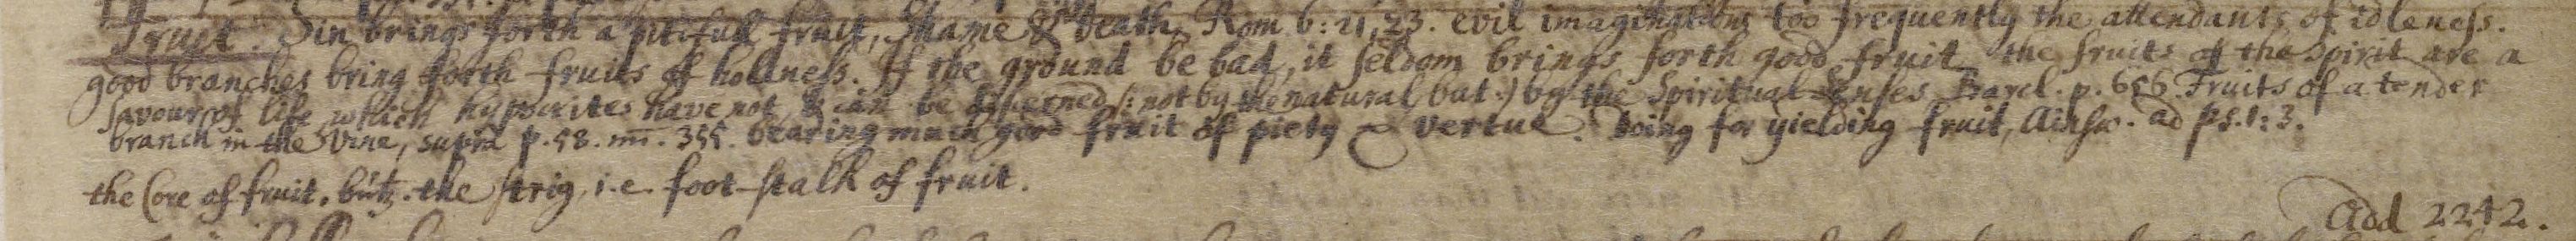 Fruit. Sin brings forth a pitifull fruit, Shame & Death, Rom 6: 21, 23. evil imaginations too frequently the attendants of idleness.
good branches bring forth fruits of holiness. If the ground be bad, it seldom brings forth good fruit the fruits of the Spirit are a
savour of life which hypocrites have not, & can be discerned (: not by the natural but :) by the Spiritual Senses Barcl. p. 656. Fruits of a tender
branch in the Vine, supra p. 58. m. 355. bearing much good fruit of piety & vertue. doing for yielding fruit, Ainsw. ad ps. 1: 3.
the Core of fruit. the strig, i.e. foot-stalk of fruit.
Add 2242.